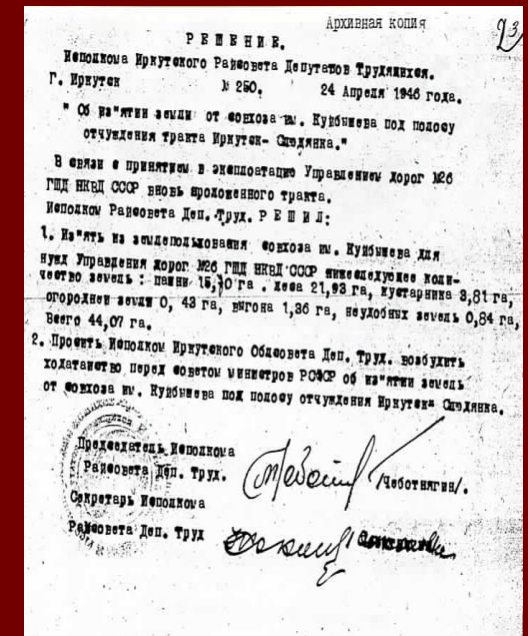 Архивная копия
23
РЕШЕНИЕ.
Исполкома Иркутского Райсовета Депутатов Трудящихся.
Г. Иркутск № 250. 24 Апреля 1946 года.
" Об из"ятии земли от совхоза им. Куйбышева под полосу
отчуждения тракта Иркутск- Слюдянка."
В связи с принятием в эксплоатацию Управлением дорог №26
ГШД НКВД СССР вновь проложенного тракта.
Исполком Райсовета Деп. Труд. Р Е Ш И Л:
1. Из"ять из землепользования совхоза им. Куйбышева для
нужд Управления дорог №26 ГШД НКВД СССР нижеследуюее коли-
чество земель: пашни га. леса 21,93 га, кустарника 3,81 га,
огородней земли 0, 43 га, выгона 1,36 га, неудобных земель 0,84 га,
Всего 44,07 га.
2. Просить Исполком Иркутского Облсовета Деп. Труд. возбудить
ходатаиство перед советом министров РСФСР об из"ятии земель
от совхоза им. Куйбышева под полосу отчуждения Иркутск- Слюдянка.
Председатель Исполкома
Райсовета Деп. Труд. /Чеботнягин/.
Секретарь Исполкома
Райсовета Деп. Труд